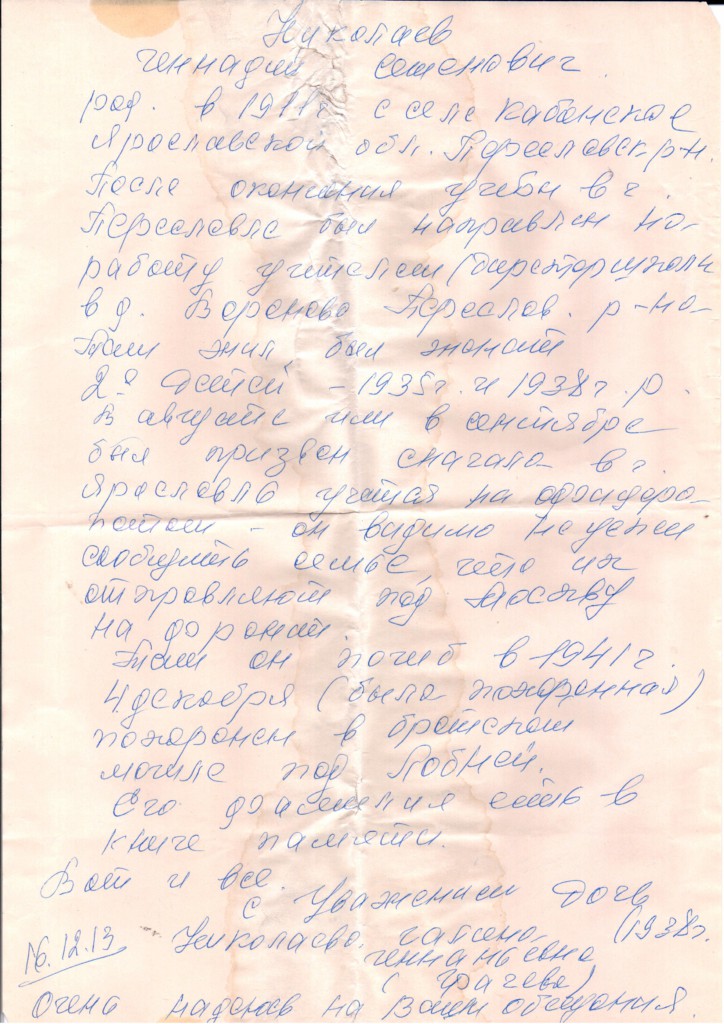 Николаев
Геннадий Семенович
род. в 1911г с селе Кабанское
Ярославской обл. Переславск р-н.
После окончания учебы в г.
Переславле был направлен на
работу учителем (директор школы
в д. Вороново Переслав. р-на
Там жил, был женат
2е детей - 1935г. и 1938г.р.
В августе или в сентябре
был призван сначала в г.
Ярославль учится на офицера
потом - он видимо не успел
сообщить семье, что их
отправляют под Москву
на
Там он погиб в 1941г.
4 декабря (была похоронная)
похоронен в братском
могиле под Лобней.
Его фамилия есть в
книге памяти.
Вот и все.
с Уважением Дочь
Николаева (1938г.
16.12.13
(Грачева)
Очень надеюсь на Ваши